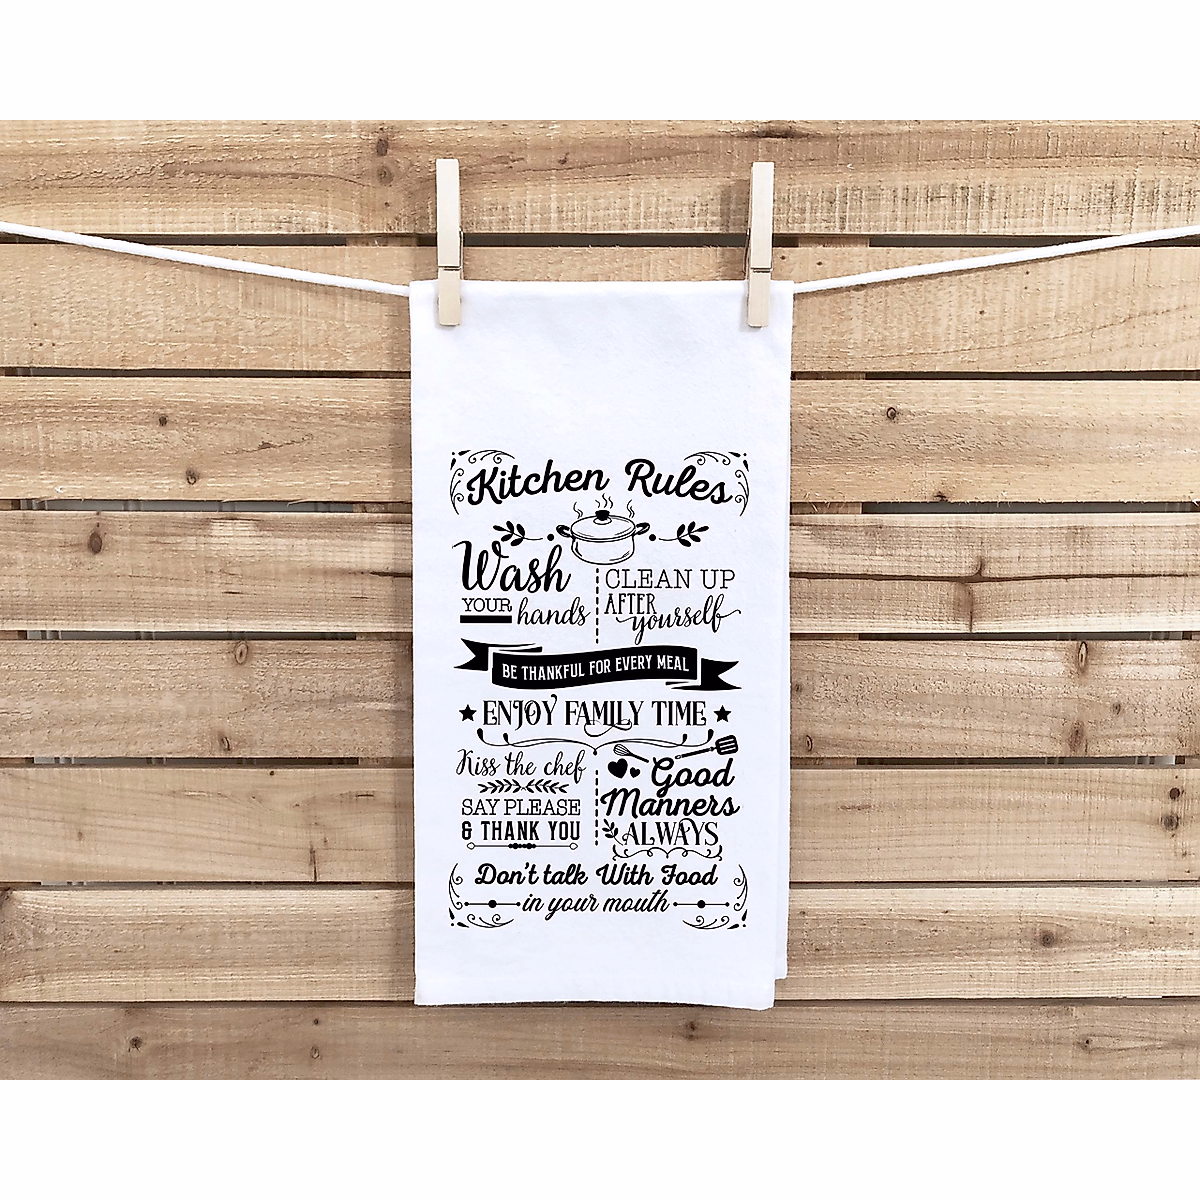 Kitchen Rules
Wash
YOUR hands
CLEAN UP
AFTER
yourself
BE THANKFUL FOR EVERY MEAL
ENJOY FAMILY TIME
Kiss the chef
SAY PLEASE
& THANK YOU
Good
Manners
ALWAYS
Don't talk With Food
in your mouth